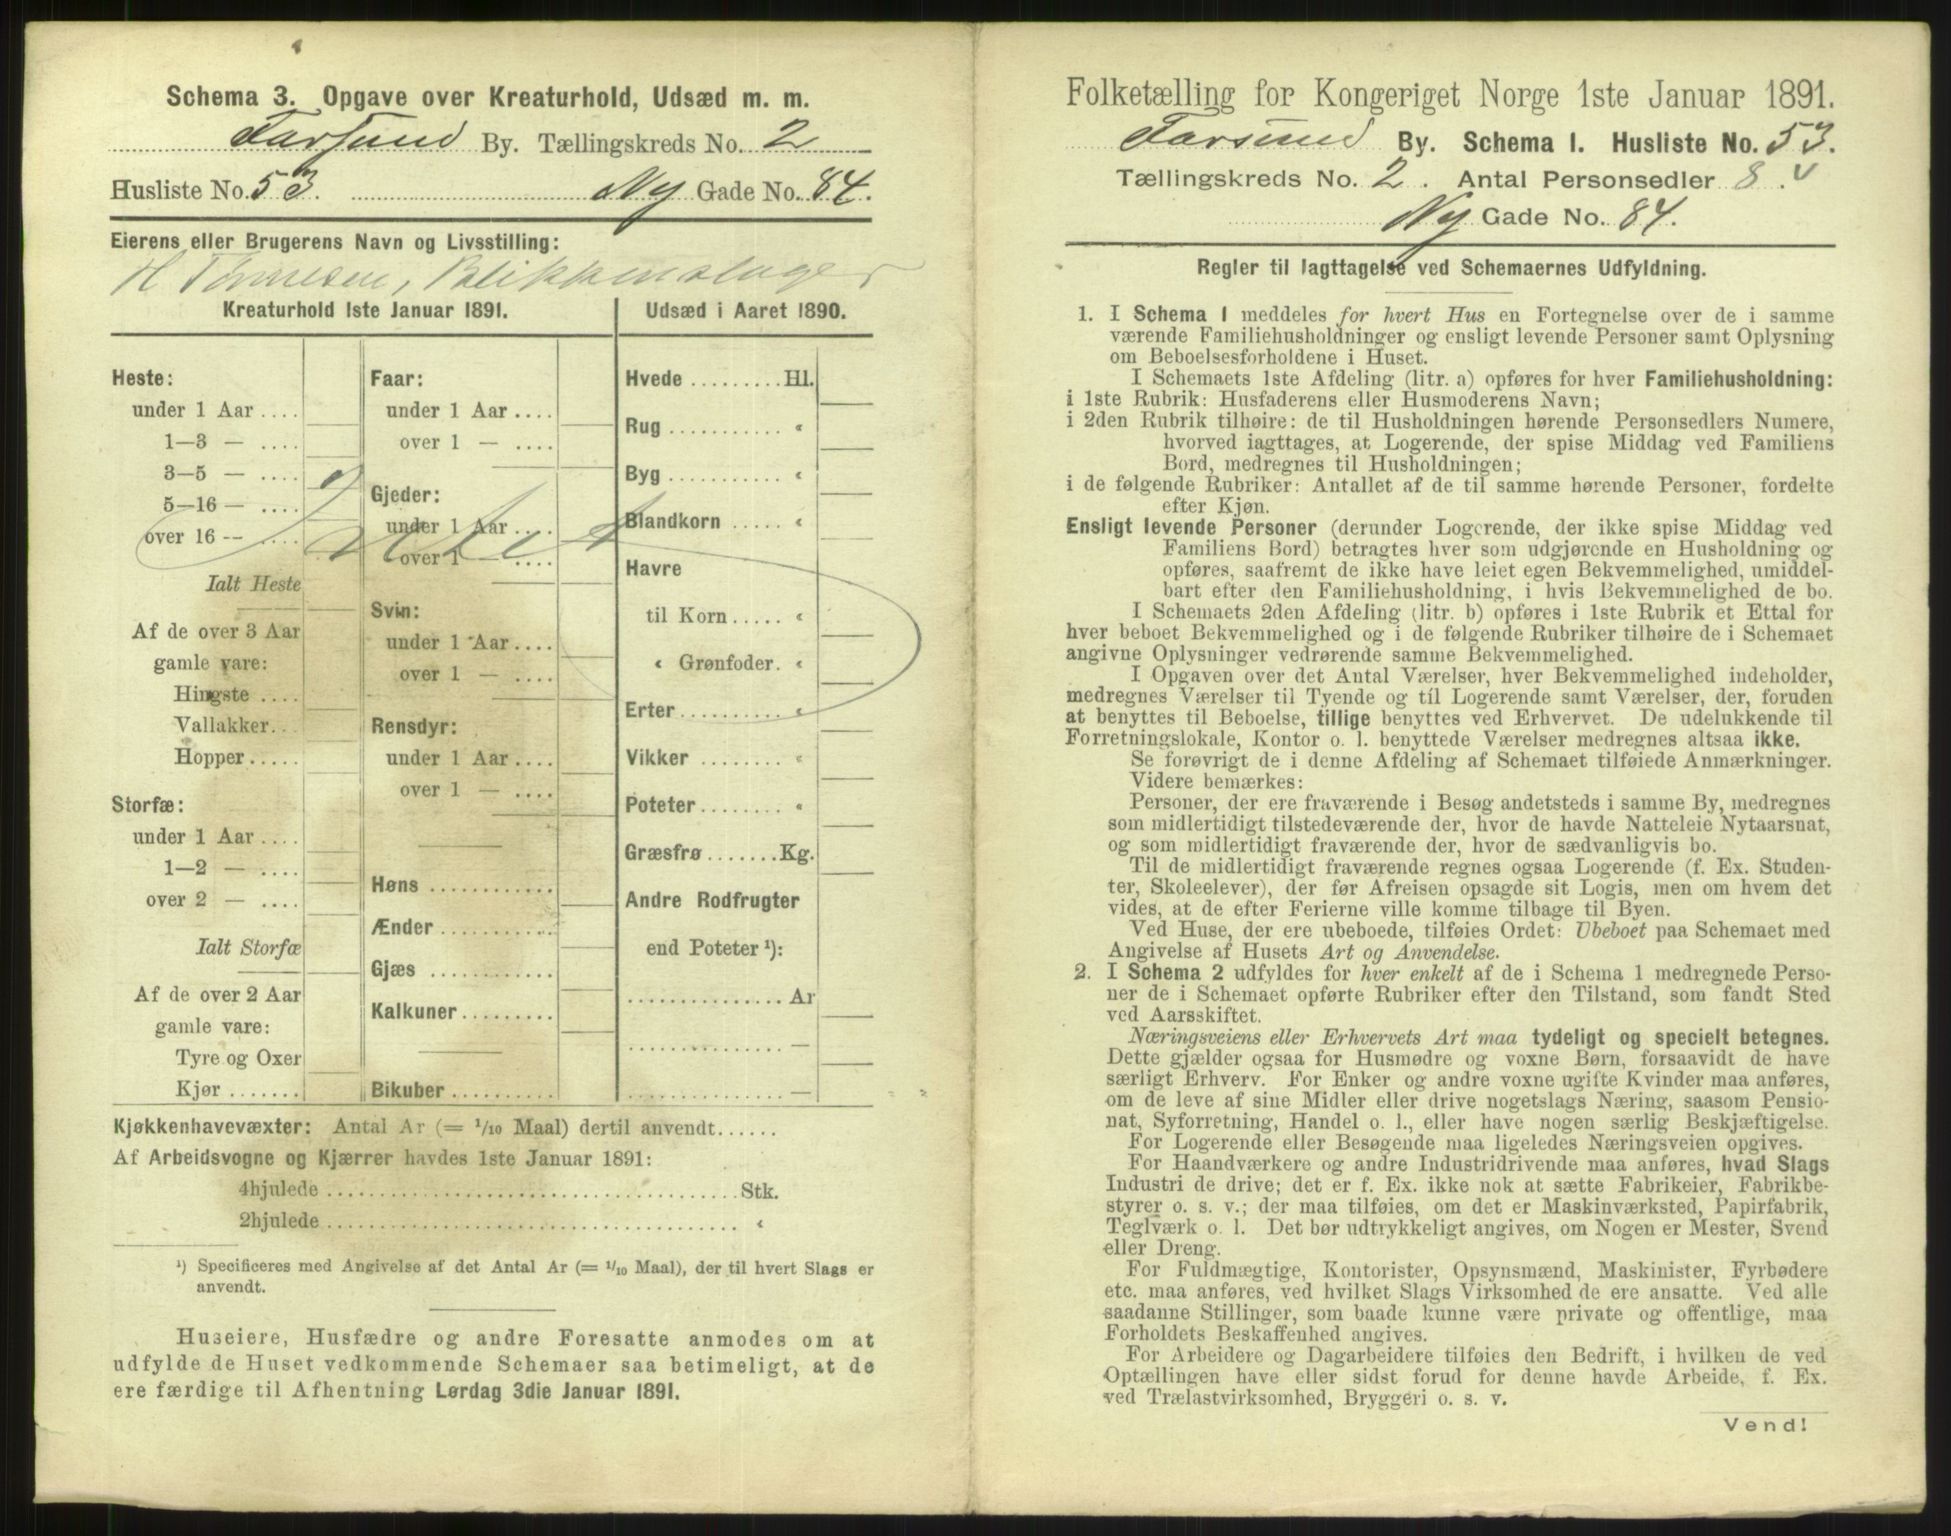 Schema 3. Opgave over Kreaturhold, Udsæd m. m.
Farsund By. Tællingskreds No. 2
Husliste No. 53. Ny Gade No. 84.
Eierens eller Brugerens Navn og Livsstilling:
H Tønnesen, Blikkenslager
Kreaturhold 1ste Januar 1891.
Heste:
under 1 Aar ....
1—3 — ....
3—5 — ....
5—16 — ....
over 16 — ....
Ialt Heste
Af de over 3 Aar
gamle vare:
Hingste ....
Vallakker...
Hopper.....
Storfæ:
under 1 Aar ....
1—2 — ....
over 2 — ....
Ialt Storfæ
Af de over 2 Aar
gamle vare:
Tyre og Oxer
Kjør .......
Faar:
under 1 Aar ....
over 1 — ....
Gjeder:
under 1 Aar ....
over 1 — ....
Svin:
under 1 Aar ....
over 1 — ....
Rensdyr:
under 1 Aar ....
over 1 — ....
Høns ............
Ænder ...........
Gjæs ............
Kalkuner.........
Bikuber ..........
Udsæd i Aaret 1890.
Hvede .........Hl.
Rug ........... «
Byg ........... «
Blandkorn ..... «
Havre
til Korn ..... «
« Grønfoder. «
Erter.......... «
Vikker ........ «
Poteter........ «
Græsfrø .......Kg.
Andre Rodfrugter
end Poteter ¹):
...............Ar
............... —
............... —
Kjøkkenhavevæxter: Antal Ar (= 1/10 Maal) dertil anvendt......
Af Arbeidsvogne og Kjærrer havdes 1ste Januar 1891:
4hjulede ........................................Stk.
2hjulede ........................................ «
¹) Specificeres med Angivelse af det Antal Ar (= 1/10 Maal), der til hvert Slags er
anvendt.
Huseiere, Husfædre og andre Foresatte anmodes om at
udfylde de Huset vedkommende Schemaer saa betimeligt, at de
ere færdige til Afhentning Lørdag 3die Januar 1891.
Folketælling for Kongeriget Norge 1ste Januar 1891.
Farsund By. Schema I. Husliste No. 53.
Tællingskreds No. 2. Antal Personsedler 8.
Ny Gade No. 84.
Regler til Iagttagelse ved Schemaernes Udfyldning.
1. I Schema I meddeles for hvert Hus en Fortegnelse over de i samme
værende Familiehusholdninger og ensligt levende Personer samt Oplysning
om Beboelsesforholdene i Huset.
I Schemaets 1ste Afdeling (litr. a) opføres for hver Familiehusholdning:
i 1ste Rubrik: Husfaderens eller Husmoderens Navn;
i 2den Rubrik tilhøire: de til Husholdningen hørende Personsedlers Numere,
hvorved iagttages, at Logerende, der spise Middag ved Familiens
Bord, medregnes til Husholdningen;
i de følgende Rubriker: Antallet af de til samme hørende Personer, fordelte
efter Kjøn.
Ensligt levende Personer (derunder Logerende, der ikke spise Middag ved
Familiens Bord) betragtes hver som udgjørende en Husholdning og
opføres, saafremt de ikke have leiet egen Bekvemmelighed, umiddel-
bart efter den Familiehusholdning, i hvis Bekvemmelighed de bo.
I Schemaets 2den Afdeling (litr. b) opføres i 1ste Rubrik et Ettal for
hver beboet Bekvemmelighed og i de følgende Rubriker tilhøire de i Schemaet
angivne Oplysninger vedrørende samme Bekvemmelighed.
I Opgaven over det Antal Værelser, hver Bekvemmelighed indeholder,
medregnes Værelser til Tyende og til Logerende samt Værelser, der, foruden
at benyttes til Beboelse, tillige benyttes ved Erhvervet. De udelukkende til
Forretningslokale, Kontor o. l. benyttede Værelser medregnes altsaa ikke.
Se forøvrigt de i denne Afdeling af Schemaet tilføiede Anmærkninger.
Videre bemærkes:
Personer, der ere fraværende i Besøg andetsteds i samme By, medregnes
som midlertidigt tilstedeværende der, hvor de havde Natteleie Nytaarsnat,
og som midlertidigt fraværende der, hvor de sædvanligvis bo.
Til de midlertidigt fraværende regnes ogsaa Logerende (f. Ex. Studen-
ter, Skoleelever), der før Afreisen opsagde sit Logis, men om hvem det
vides, at de efter Ferierne ville komme tilbage til Byen.
Ved Huse, der ere ubeboede, tilføies Ordet: Ubeboet paa Schemaet med
Angivelse af Husets Art og Anvendelse.
2. I Schema 2 udfyldes for hver enkelt af de i Schema 1 medregnede Perso-
ner de i Schemaet opførte Rubriker efter den Tilstand, som fandt Sted
ved Aarsskiftet.
Næringsveiens eller Erhvervets Art maa tydeligt og specielt betegnes.
Dette gjælder ogsaa for Husmødre og voxne Børn, forsaavidt de have
særligt Erhverv. For Enker og andre voxne ugifte Kvinder maa anføres,
om de leve af sine Midler eller drive nogetslags Næring, saasom Pensio-
nat, Syforretning, Handel o. l., eller have nogen særlig Beskjæftigelse.
For Logerende eller Besøgende maa ligeledes Næringsveien opgives.
For Haandværkere og andre Industridrivende maa anføres, hvad Slags
Industri de drive; det er f. Ex. ikke nok at sætte Fabrikeier, Fabrikbe-
styrer o. s. v.; der maa tilføies, om det er Maskinværksted, Papirfabrik,
Teglværk o. l. Det bør udtrykkeligt angives, om Nogen er Mester, Svend
eller Dreng.
For Fuldmægtige, Kontorister, Opsynsmænd, Maskinister, Fyrbødere
etc. maa anføres, ved hvilket Slags Virksomhed de ere ansatte. Ved alle
saadanne Stillinger, som baade kunne være private og offentlige, maa
Forholdets Beskaffenhed angives.
For Arbeidere og Dagarbeidere tilføies den Bedrift, i hvilken de ved
Optællingen have eller sidst forud for denne havde Arbeide, f. Ex.
ved Trælastvirksomhed, Bryggeri o. s. v.
Vend!